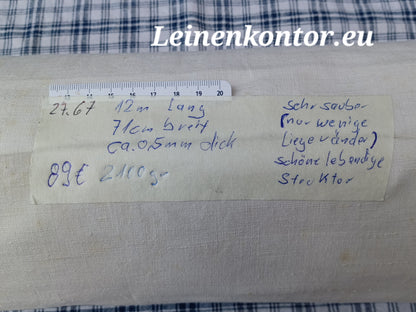 Leinenkontor.eu
12 13 14 15 16 17 18 19 20
27.67 12m lang
71cm breit
ca. 0,5mm dick
89€ 2100gr
sehr sauber
(nur wenige
Liegeränder)
schöne lebendige
Struktur